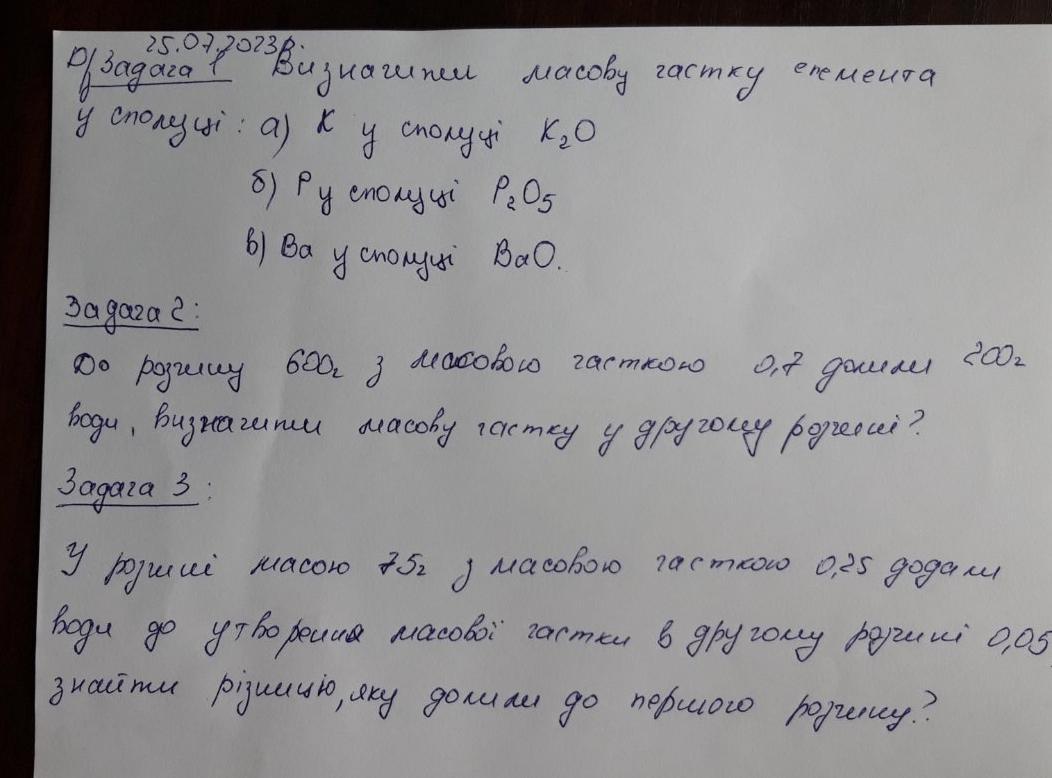 25.07.2023р.
D/Задача 1 Визначити масову частку елемента
у сполуці: а) K у сполуці K₂O
б) P у сполуці P₂O₅
в) Ba у сполуці BaO.
Задача 2:
До розчину 600г з масовою часткою 0,7 долили 200г
води, визначити масову частку у другому розчині?
Задача 3:
У розчині масою 75г з масовою часткою 0,25 додали
води до утворення масової частки в другому розчині 0,05,
знайти різницю, яку долили до першого розчину?